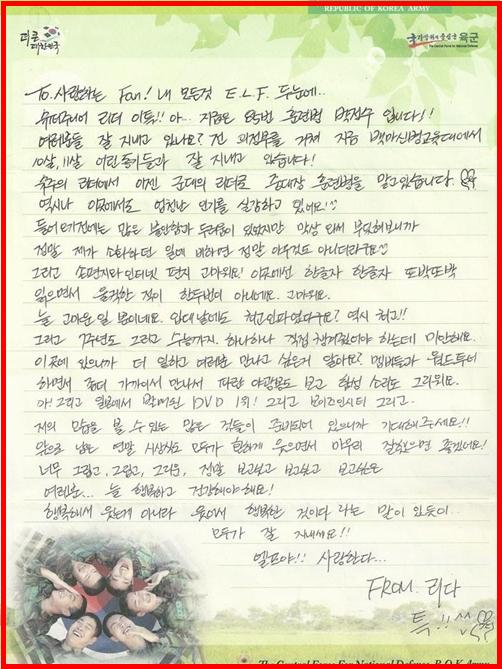 REPUBLIC OF KOREA ARMY
국가방위의 중심군 육군
The Central Force for National Defense
To. 사랑하는 Fan! 내 모든것 E.L.F. 두눈에..
슈퍼주니어 리더 이특!! 아... 지금은 훈련병 박정수 입니다!!
여러분들 잘 지내고 있나요? 전 지금 백마신병교육대에서
10살, 11살 어린 동생들과 잘 지내고 있습니다.
슈주의 리더에서 이젠 군대의 리더로 중대장 훈련병을 맡고있습니다
역시나 이곳에서도 엄청난 인기를 실감하고 있네요!
들어오기전에는 많은 불안함과 두려움이 있었지만 막상 와서 부딪혀보니까
정말 제가 소화하던 일에 비하면 정말 아무것도 아니더라구요
그리고 손편지와 인터넷 편지 고마워요! 이곳에선 한글자 한글자 또박또박
읽으면서 울컥한 적이 한두번이 아니에요. 고마워요.
늘 고마운 일 뿐이네요. 입대날에도 최고인파였다구요? 역시 최고!!
그리고 7주년도 그리고 수능까지. 하나하나 직접 챙겨줬어야 하는데 미안해요.
이곳에 있으니까 더 일하고 여러분 만나고 싶은거 알아요? 멤버들과 월드투어
하면서 좀더 가까이서 만나서 파란 야광봉도 보고 함성 소리도 그리워요.
아! 그리고 일본에서 발매된 DVD 1위! 그리고 보이즈인시티 그리고..
저의 모습을 볼 수 있는 많은 것들이 준비되어 있으니까 기대해주세요!!
앞으로 남은 연말 시상식도 모두가 환하게 웃으면서 마무리 잘했으면 좋겠네요!
너무 그립고, 그립고, 그리운, 정말 보고싶고 보고싶고 보고싶은
여러분... 늘 행복하고 건강해야해요!
행복해서 웃는게 아니라 웃어서 행복한 것이다 라는 말이 있듯이..
모두가 잘 지내세요!!
엘프야!! 사랑한다...
FROM. 리다
특!!
The Central Force For National Defense, R.O.K Army